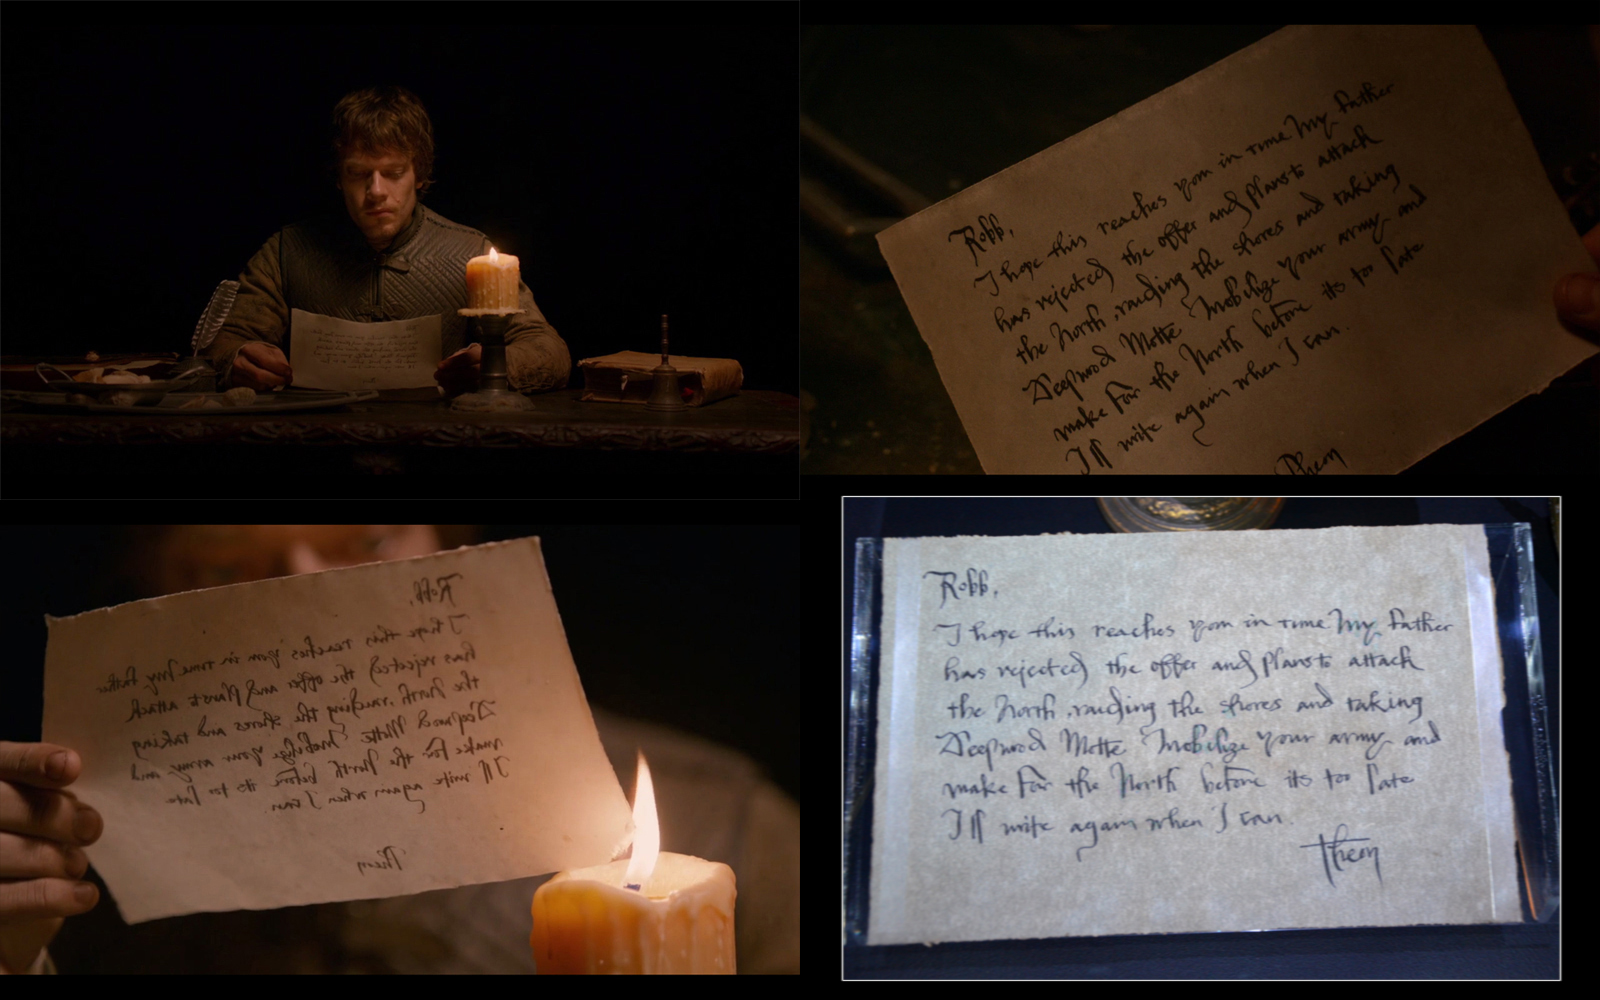 Robb,
I hope this reaches you in time My father
has rejected the offer and plans to attack
the North, raiding the shores and taking
Deepwood Motte Mobilize your army and
make for the North before its too late
I'll write again when I can.
Theon
Robb,
I hope this reaches you in time My father
has rejected the offer and plans to attack
the North, raiding the shores and taking
Deepwood Motte Mobilize your army and
make for the North before its too late
I'll write again when I can.
Theon
Robb,
I hope this reaches you in time My father
has rejected the offer and plans to attack
the North, raiding the shores and taking
Deepwood Motte Mobilize your army and
make for the North before its too late
I'll write again when I can.
Theon